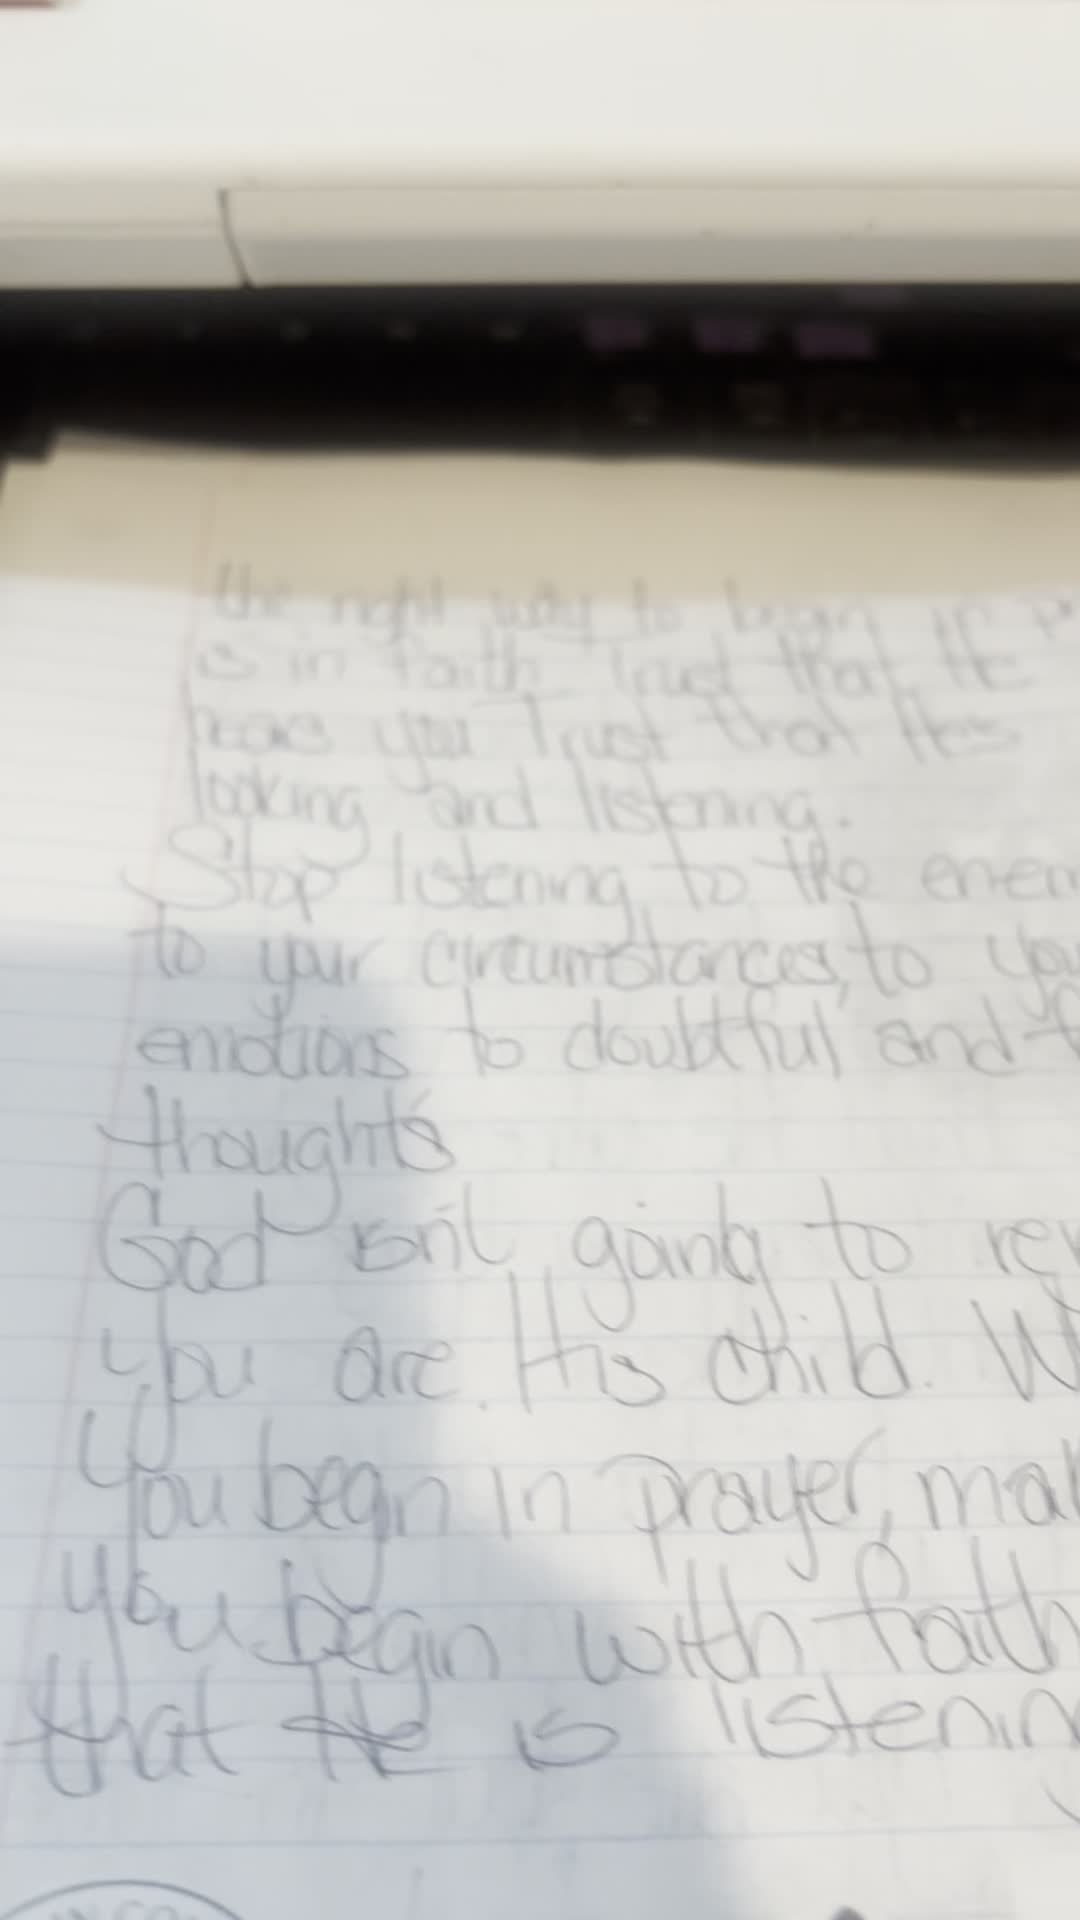 the right way to begin in
is in faith Trust that He
hears you Trust that He's
looking and listening.
Stop listening to the
to your circumstances, to
emotions to doubtful and
thoughts
God isn't going to
you are His child.
You begin in prayer,
you begin with faith
that He is